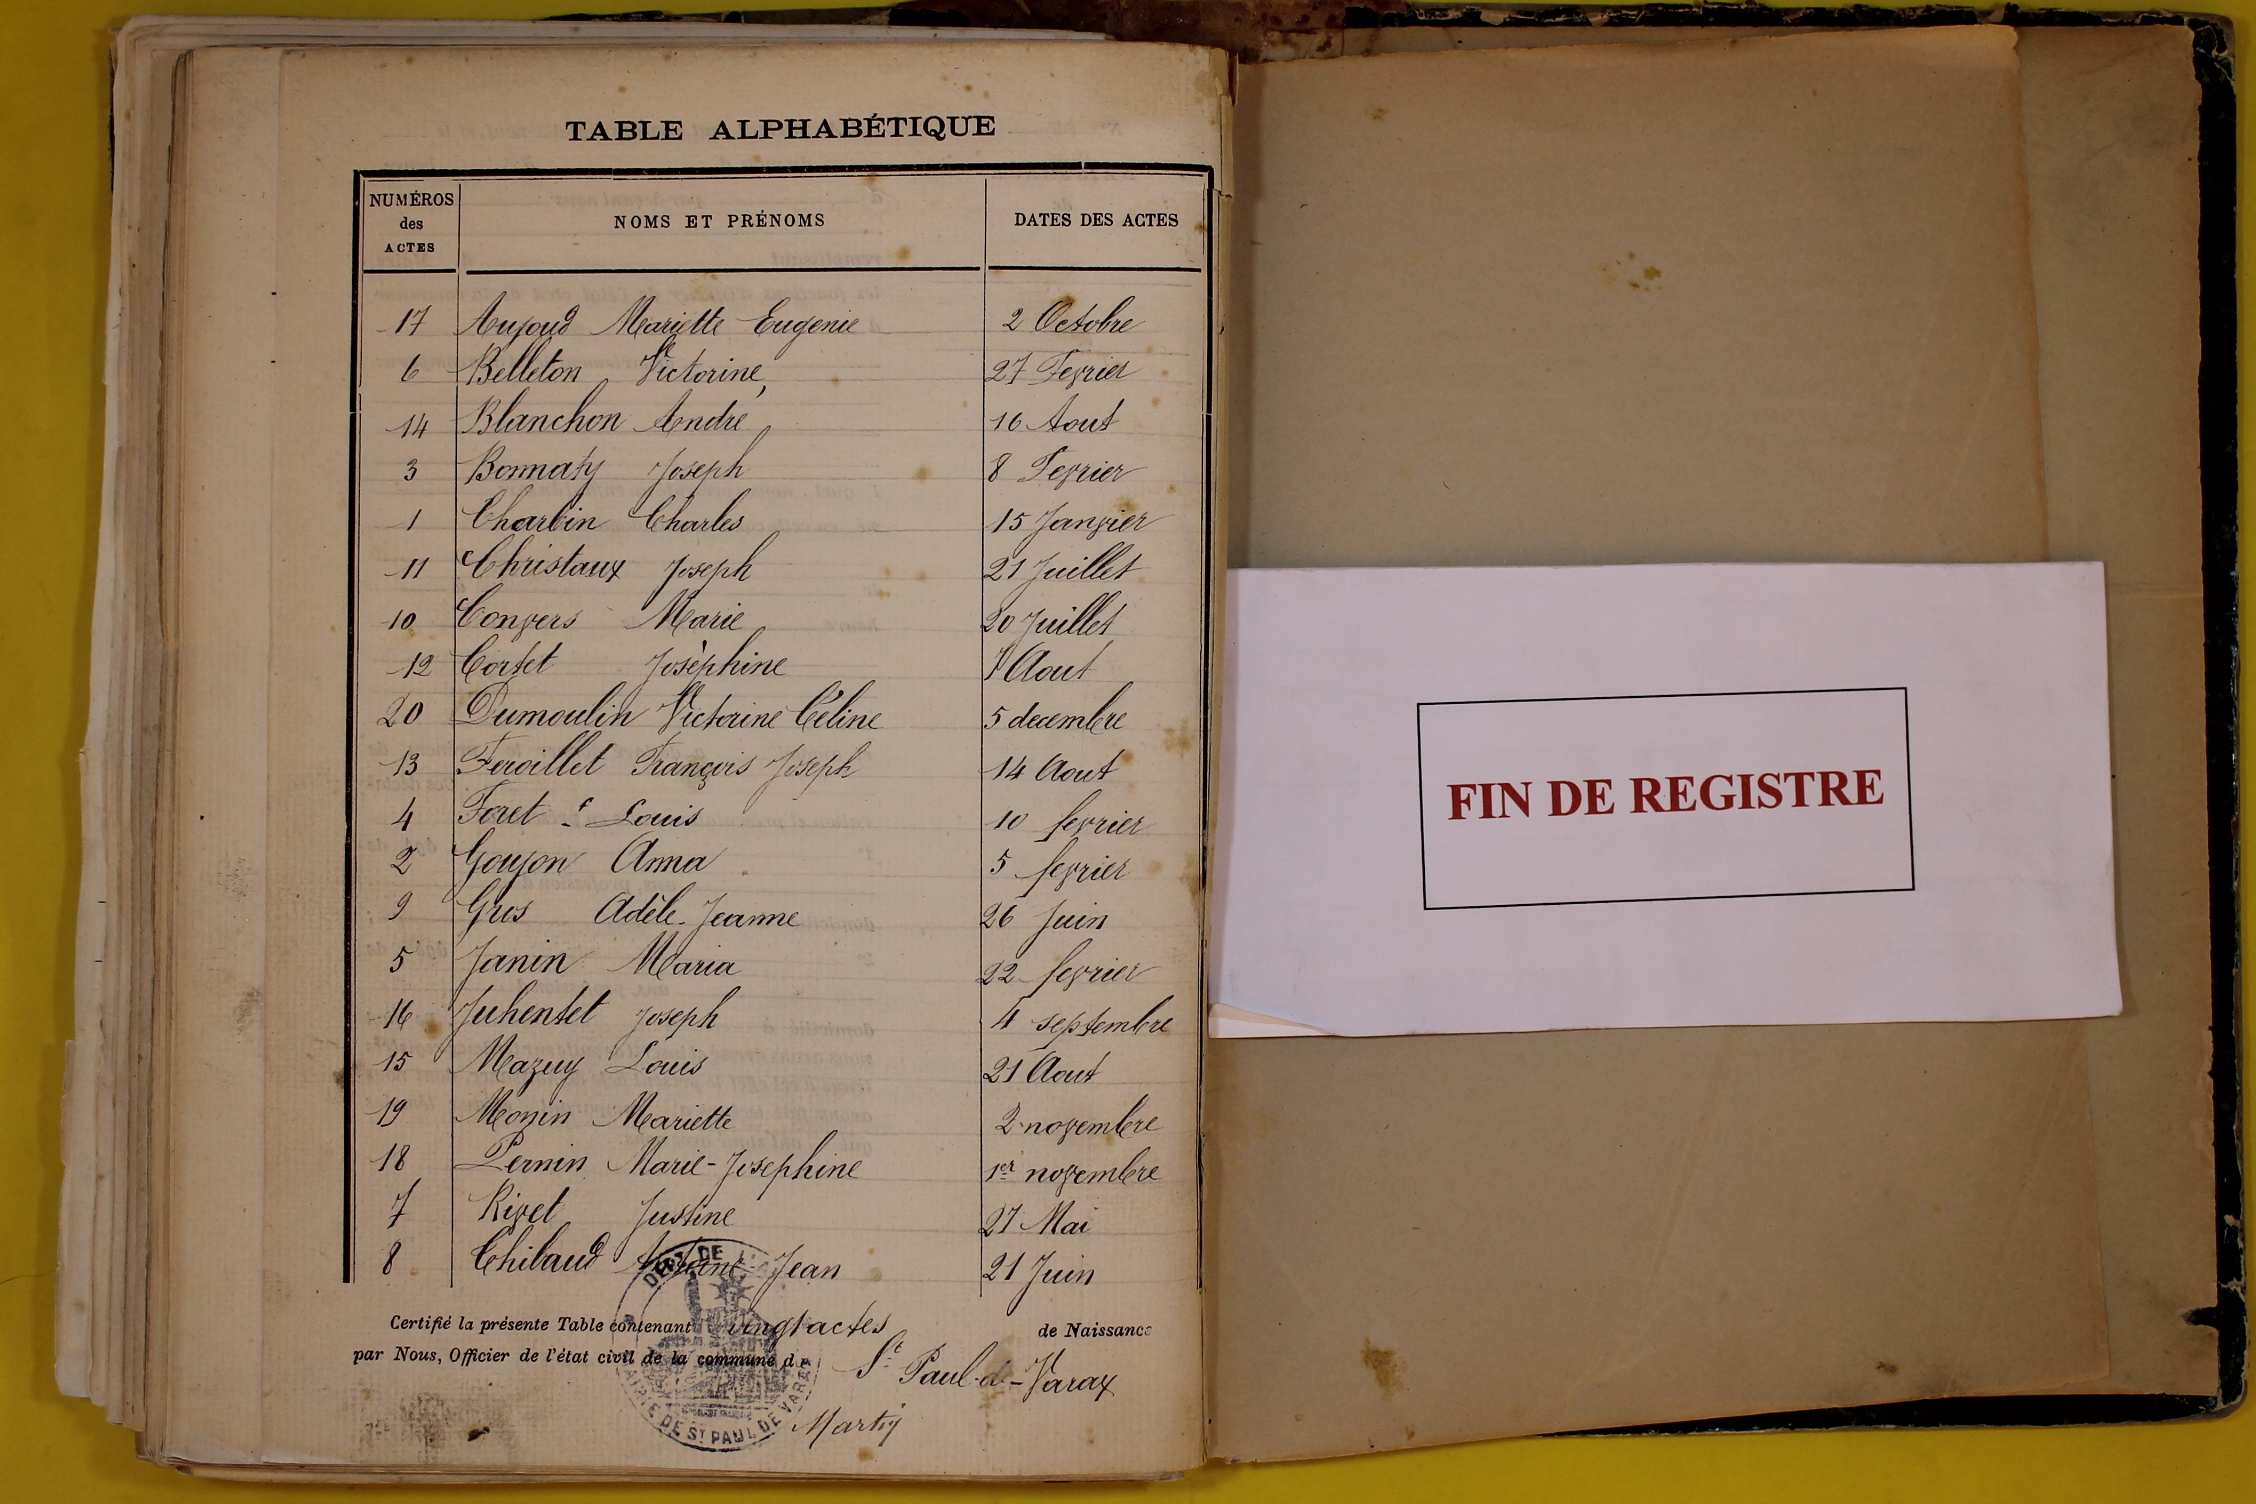 TABLE ALPHABÉTIQUE
NUMÉROS des ACTES NOMS ET PRÉNOMS DATES DES ACTES
17 Aujoud Mariette Eugenie 2 Octobre
6 Belleton Victorine, 27 Fevrier
14 Blanchon André 16 Aout
3 Bonnaty Joseph 8 Fevrier
1 Charbin Charles 15 Janvier
11 Christaux Joseph 21 Juillet
10 Convers Marie 20 Juillet
12 Cortet Josèphine 1 Aout
20 Dumoulin Victorine Céline 5 decembre
13 Feroillet François Joseph 14 Aout
4 Foret Louis 10 fevrier
2 Goujon Anna 5 fevrier
9 Gros Adèle Jeanne 26 Juin
5 Janin Maria 22 fevrier
16 Juhentet Joseph 4 septembre
15 Mazuy Louis 21 Aout
19 Monin Mariette 2 novembre
18 Pernin Marie-Josephine 1er novembre
7 Rivet Justine 27 Mai
8 Thibaud Antoine Jean 21 Juin
Certifié la présente Table contenant vingt actes de Naissance
par Nous, Officier de l'état civil de la commune de St Paul-de-Varax
Martin
DEPT DE L'AIN
MAIRIE DE ST PAUL DE VARAX
FIN DE REGISTRE